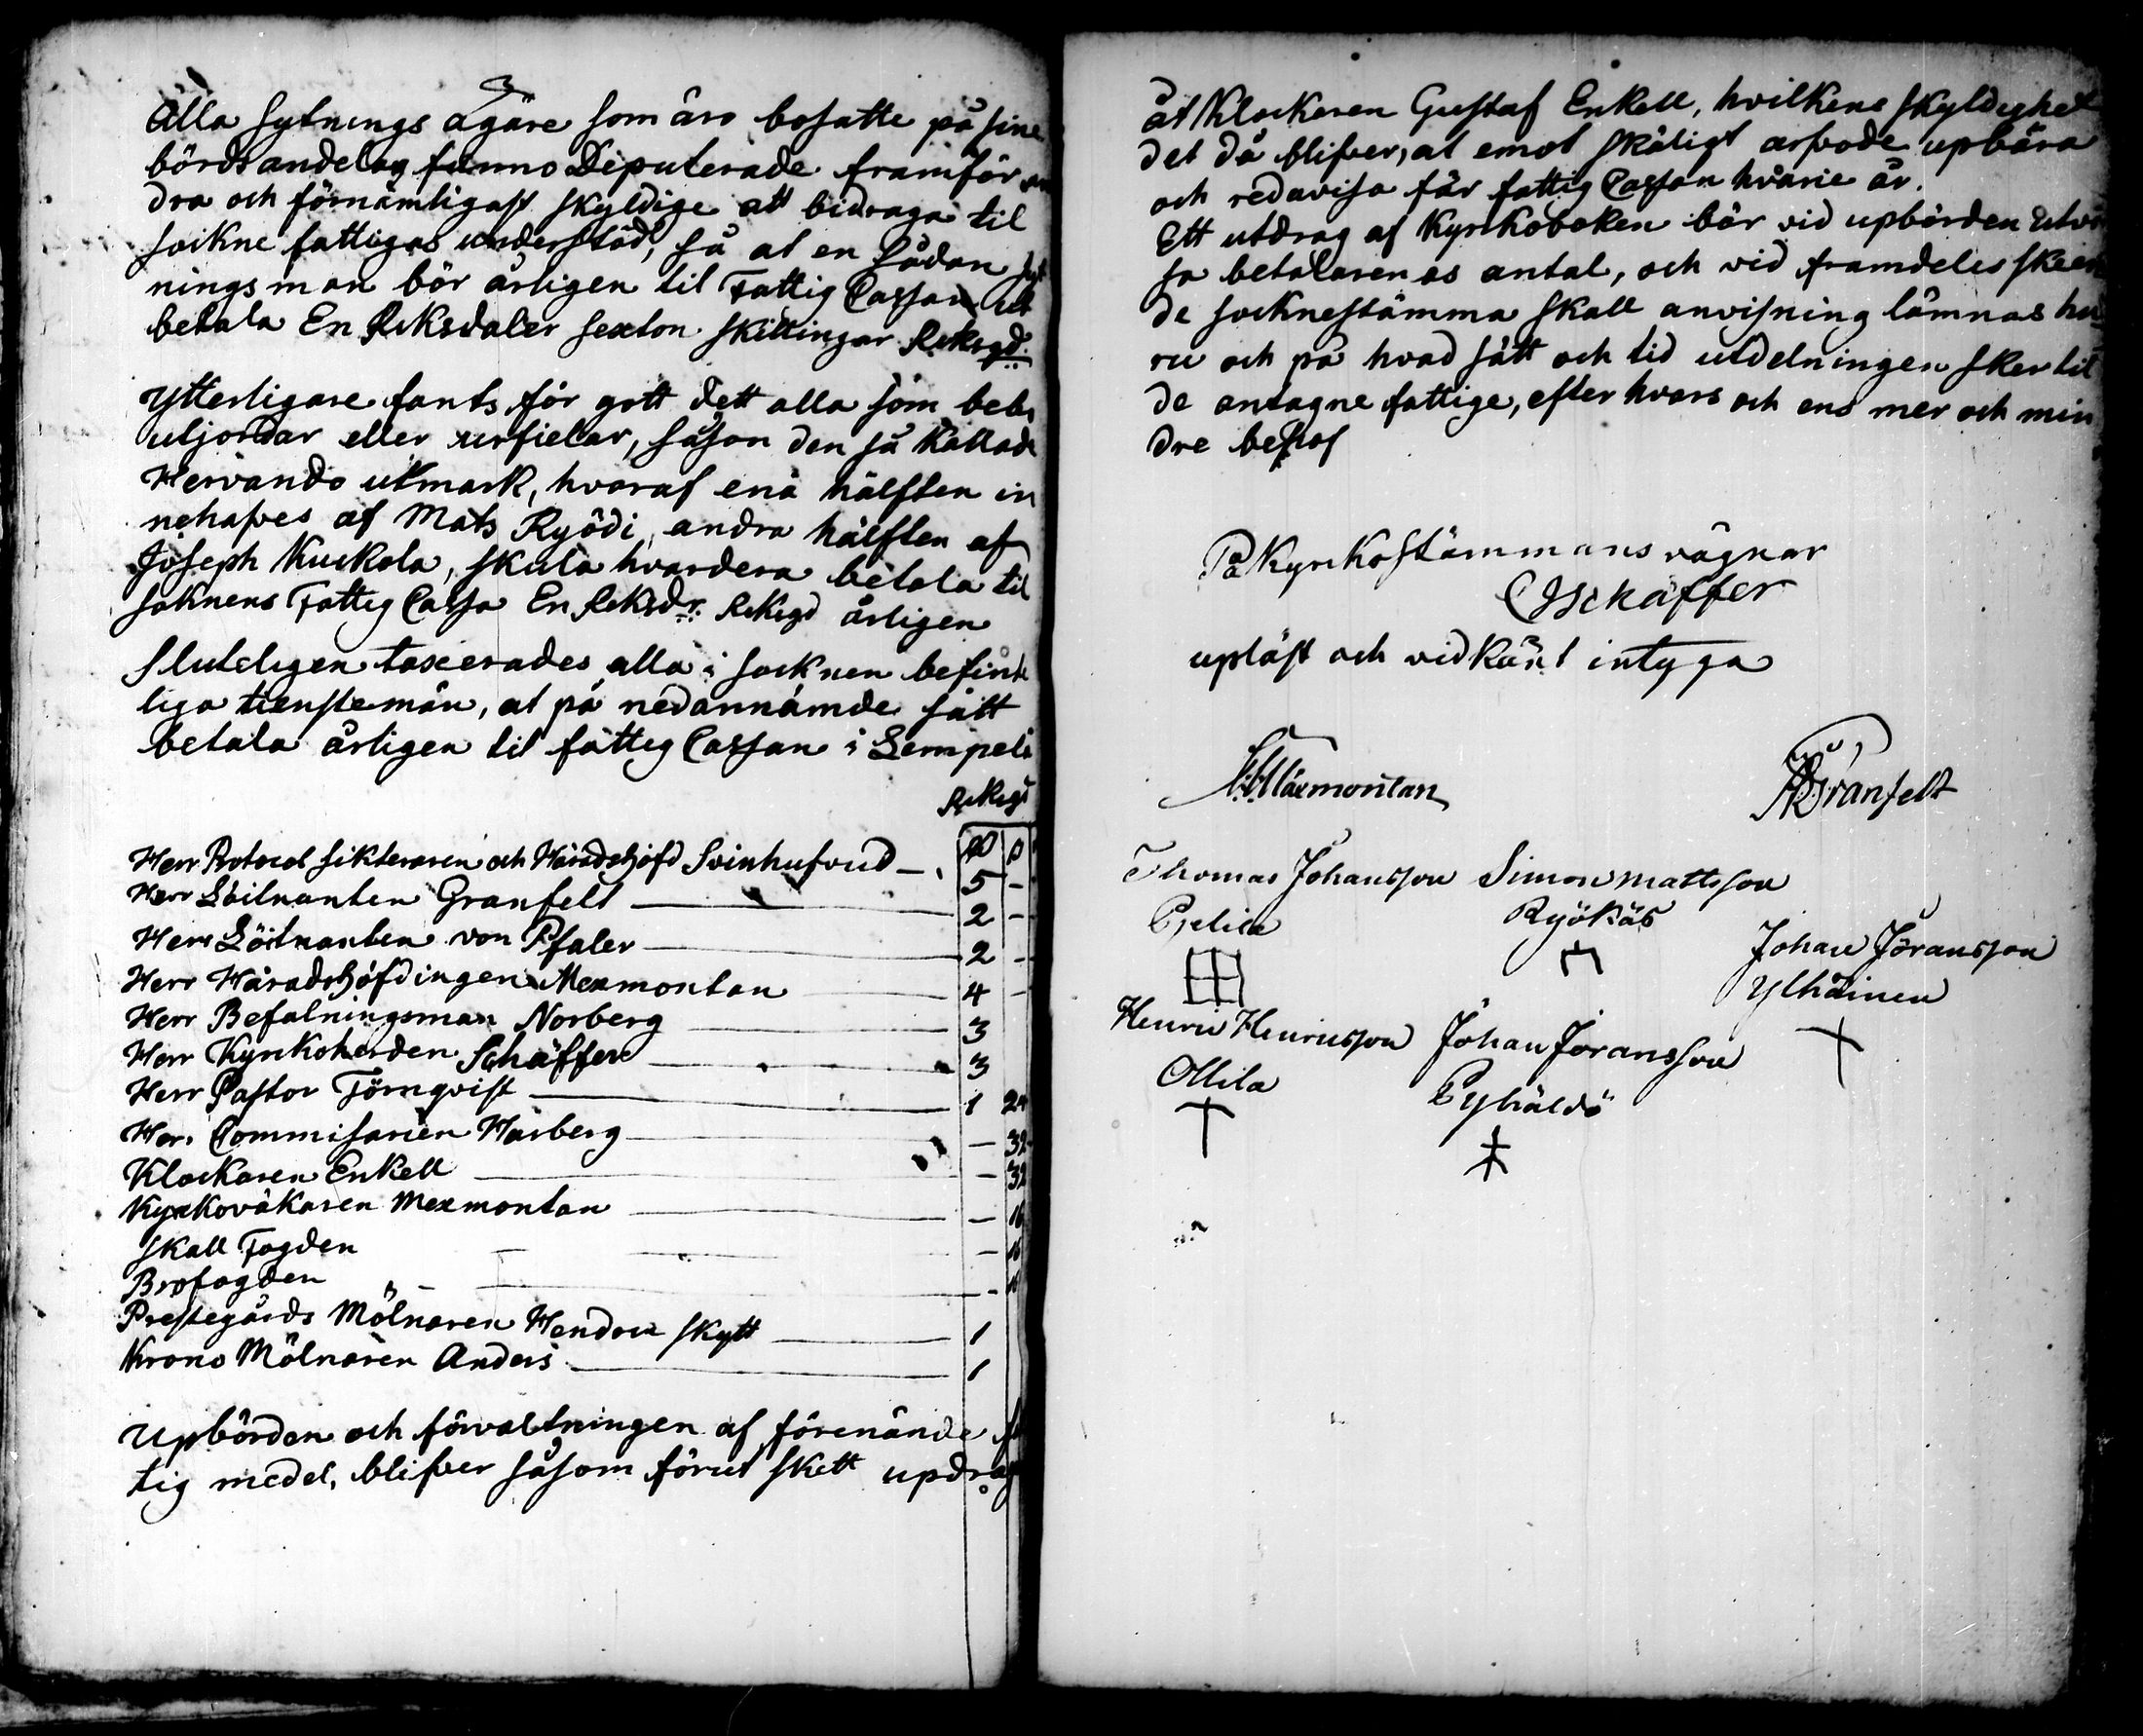 Alla sytnings ägare som äro bosatte på sine
börds andelar funno Deputerade framför an
dra och förnämligast skyldige att bidraga til
sockne fattigas understöd, så at en sådan syt
nings man bör årligen til Fattig Cassan ut
betala En Riksdaler sexton skillingar Riksgd.
Ytterligare fants för gott dett alla som beb
utjordar eller urfielar, såson den så kallade
Hervando utmark, hvaraf ena hälften in
nehafves af Mats Ryödi, andra hälften af
Joseph Kuckola, skula hvardera betala til
soknens Fattig Cassa En Riksdr. Riksgd årligen
Sluteligen taxerades alla i socknen befint
liga tienstemän, at på nedannämde sätt
betala årligen til fattig Cassan i Lempelä
Riksgd
Herr Protocol sikteraren och Häradshöfd Svinhufvud — 5 -
Herr Löitnanten Granfelt — 2 -
Herr Löitnanten von Pfaler — 2 -
Herr Häradshöfdingen Mexmontan — 4 -
Herr Befalningsman Norberg — 3
Herr Kyrckoherden Schäffer — 3
Herr Pastor Törnqvist — 1 24
Herr Commisarien Harberg — - 32
Klockaren Enkell — - 32
Kyrkoväkaren Mexmontan — - 16
Skall Fogden — - 16
Brofogden — - 16
Prestegårds Mölnaren Hendric Skytt — 1
Krono Mölnaren Anders — 1
Upbörden och förvaltningen af förenände fat
tig medel, blifver såsom förut skett updrag
åt Klockaren Gustaf Enkell, hvilkens skyldighet
det då blifver, at emot skäligt arfvode upbära
och redavisa för fattig Cassan hvarie år.
Ett utdrag af Kyrkoboken bör vid upbörden utvi
sa betalarenas antal, och vid framdeles skeen
de socknestämma skall anvisning lämnas hu
ru och på hvad sätt och tid utdelningen sker til
de antagne fattige, efter hvars och ens mer och min
dre behof
På Kyrckostämmans vägnar
C Schäffer
upläst och vidkänt intyga
Mexmontan
Granfelt
Thomas Johansson Simon Mattsson
Pjelila Ryökäs
Johan Jöransson
Ylhäinen
Henric Henricsson Johan Jöransson
Ollila Pyhäldö